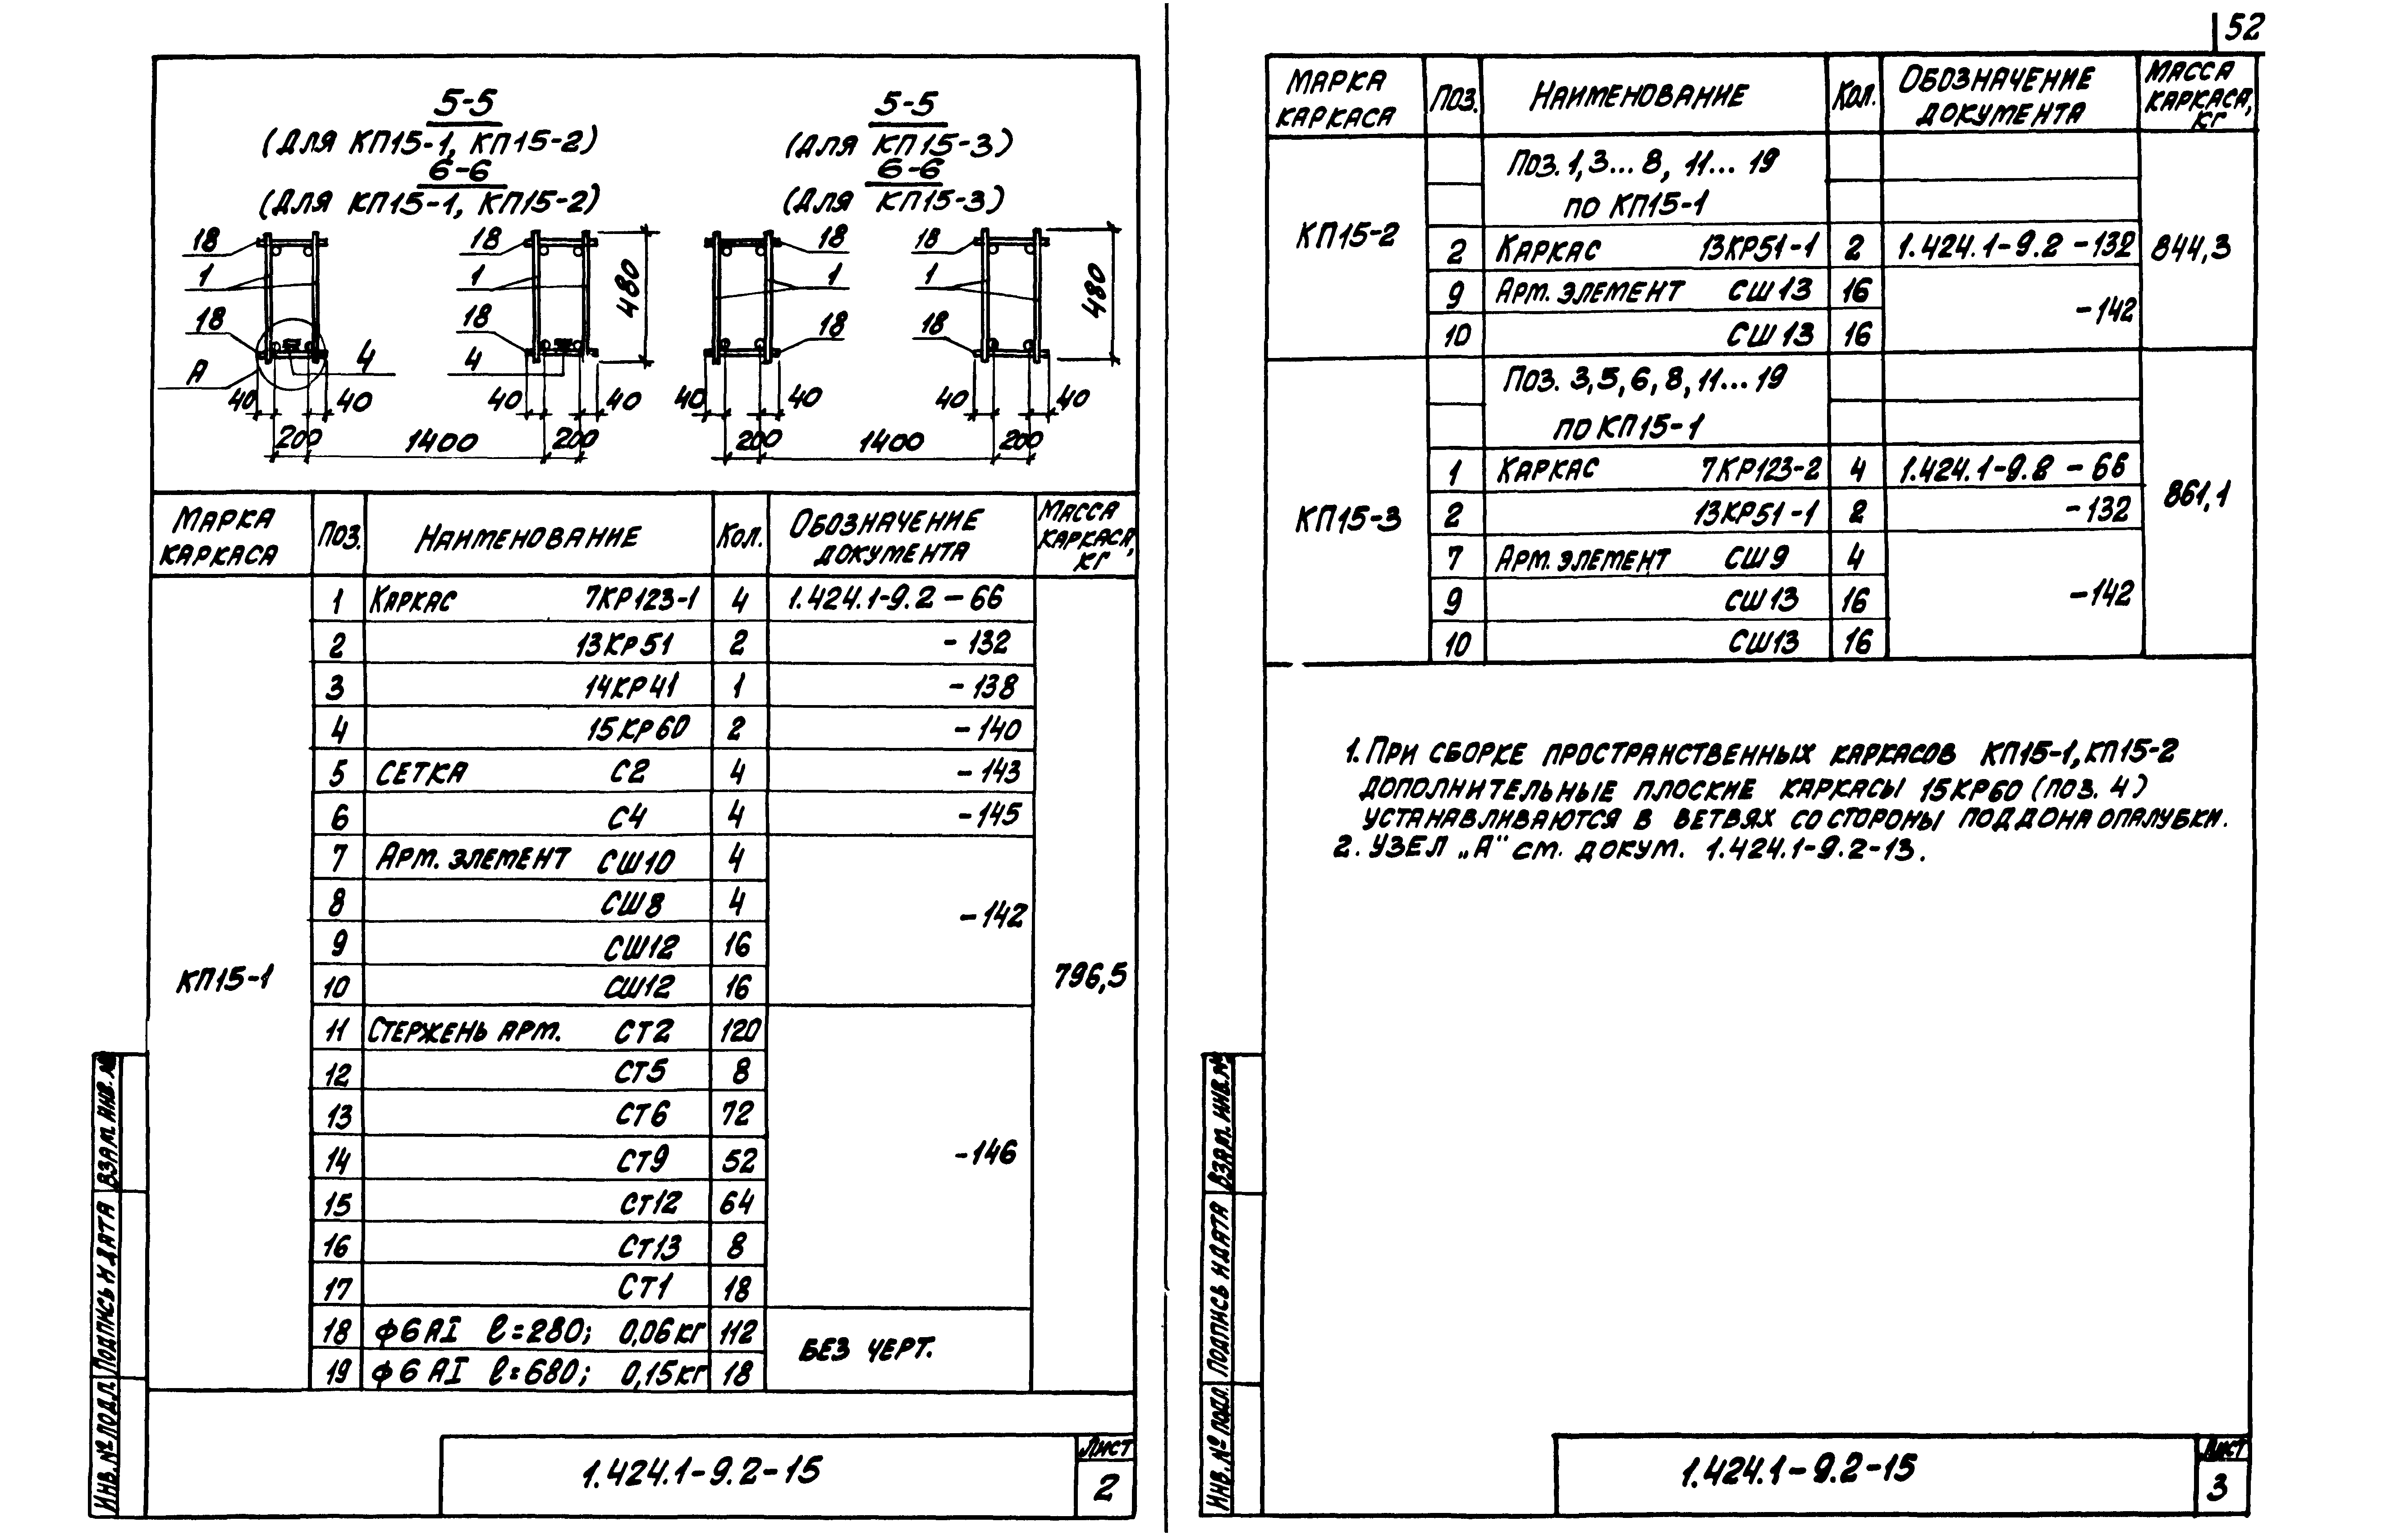 5-5
(ДЛЯ КП15-1, КП15-2)
6-6
(ДЛЯ КП15-1, КП15-2)
5-5
(ДЛЯ КП15-3)
6-6
(ДЛЯ КП15-3)
18 18 480 18 18 480
1 1 1 1
18 18 18 18
А 4 4
40 40 40 40 40 40 40 40
200 1400 200 200 1400 200
МАРКА КАРКАСА ПОЗ. НАИМЕНОВАНИЕ КОЛ. ОБОЗНАЧЕНИЕ ДОКУМЕНТА МАССА КАРКАСА, КГ
КП15-1 796,5
1 КАРКАС 7КР123-1 4 1.424.1-9.2-66
2 13КР51 2 -132
3 14КР41 1 -138
4 15КР60 2 -140
5 СЕТКА С2 4 -143
6 С4 4 -145
7 АРМ. ЭЛЕМЕНТ СШ10 4
8 СШ8 4 -142
9 СШ12 16
10 СШ12 16
11 СТЕРЖЕНЬ АРМ. СТ2 120
12 СТ5 8
13 СТ6 72
14 СТ9 52 -146
15 СТ12 64
16 СТ13 8
17 СТ1 18
18 ф6АI ℓ=280; 0,06КГ 112 БЕЗ ЧЕРТ.
19 ф6АI ℓ=680; 0,15КГ 18
ИНВ.№ ПОДЛ. ПОДПИСЬ И ДАТА ВЗАМ. ИНВ.№
1.424.1-9.2-15
ЛИСТ
2
52
МАРКА КАРКАСА ПОЗ. НАИМЕНОВАНИЕ КОЛ. ОБОЗНАЧЕНИЕ ДОКУМЕНТА МАССА КАРКАСА, КГ
КП15-2 844,3
ПОЗ. 1,3...8, 11...19
ПО КП15-1
2 КАРКАС 13КР51-1 2 1.424.1-9.2-132
9 АРМ. ЭЛЕМЕНТ СШ13 16 -142
10 СШ13 16
КП15-3 861,1
ПОЗ. 3,5,6,8,11...19
ПО КП15-1
1 КАРКАС 7КР123-2 4 1.424.1-9.2-66
2 13КР51-1 2 -132
7 АРМ. ЭЛЕМЕНТ СШ9 4
9 СШ13 16 -142
10 СШ13 16
1. ПРИ СБОРКЕ ПРОСТРАНСТВЕННЫХ КАРКАСОВ КП15-1, КП15-2
ДОПОЛНИТЕЛЬНЫЕ ПЛОСКИЕ КАРКАСЫ 15КР60 (ПОЗ. 4)
УСТАНАВЛИВАЮТСЯ В ВЕТВЯХ СО СТОРОНЫ ПОДДОНА ОПАЛУБКИ.
2. УЗЕЛ „А" СМ. ДОКУМ. 1.424.1-9.2-13.
ИНВ.№ ПОДЛ. ПОДПИСЬ И ДАТА ВЗАМ. ИНВ.№
1.424.1-9.2-15
ЛИСТ
3